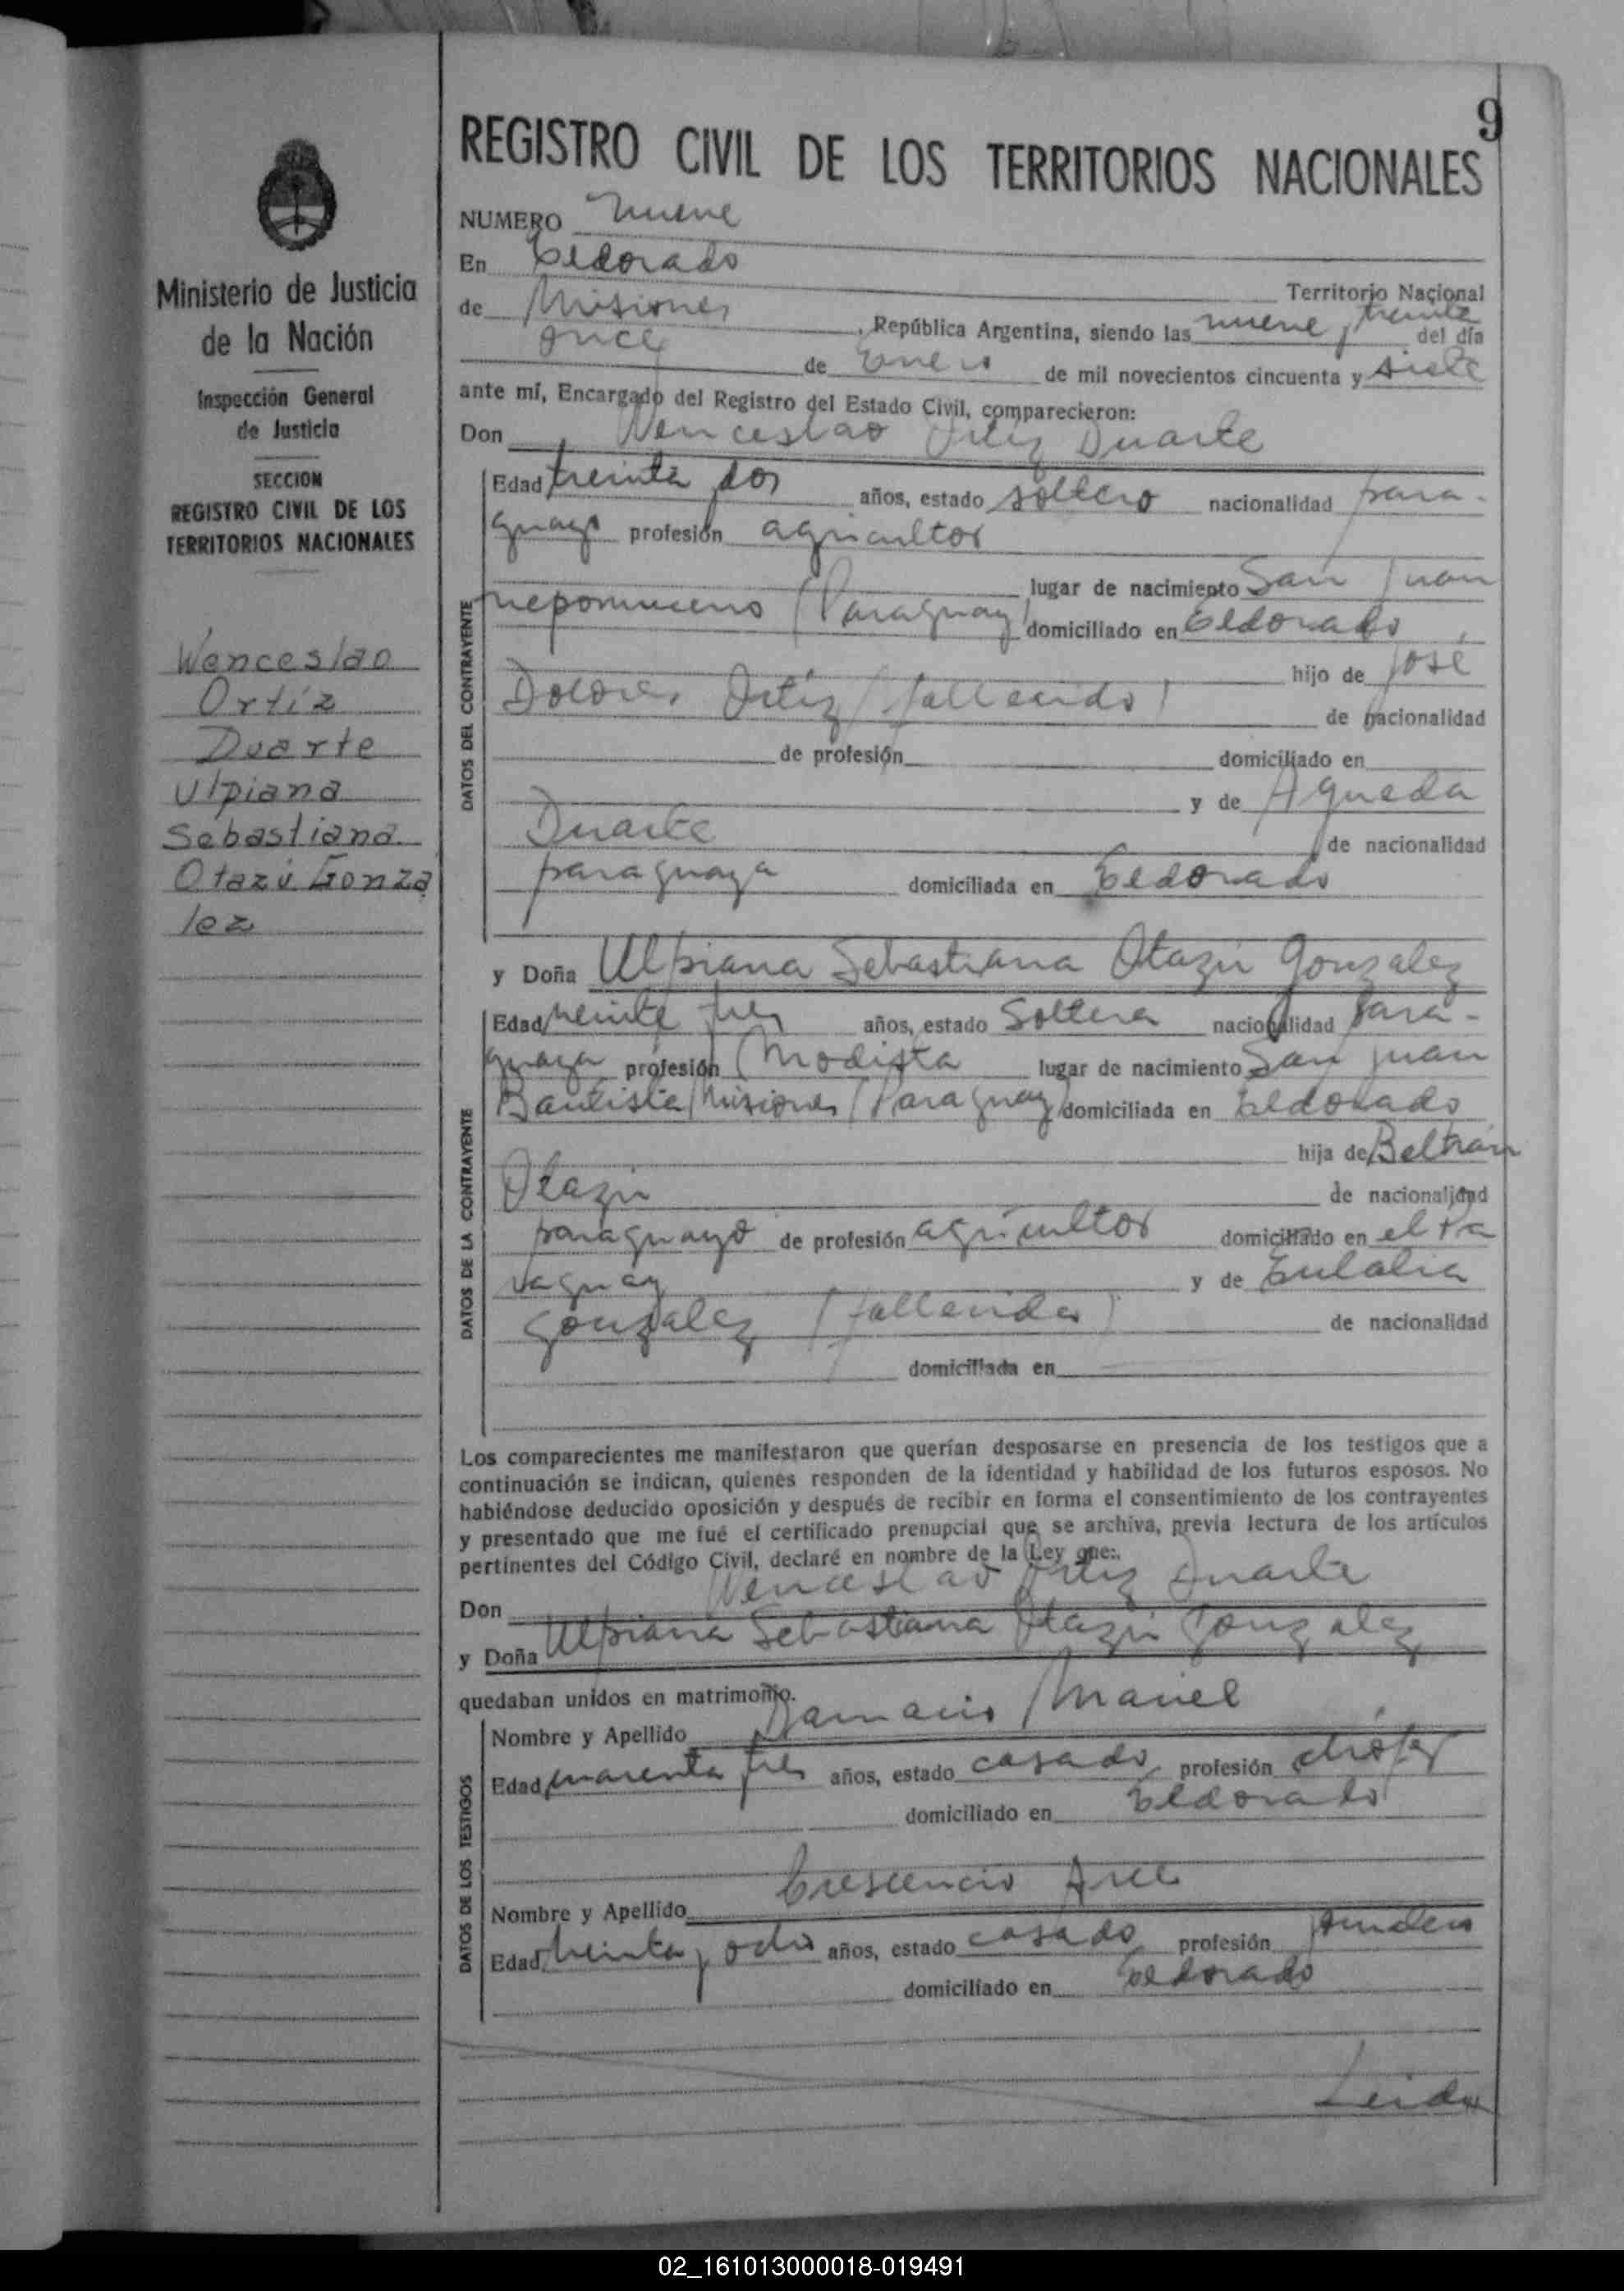 9
REGISTRO CIVIL DE LOS TERRITORIOS NACIONALES
NUMERO nueve
En Eldorado
Territorio Nacional
de Misiones, República Argentina, siendo las nueve y treinta del día
once de Enero de mil novecientos cincuenta y siete
ante mí, Encargado del Registro del Estado Civil, comparecieron:
Don Wenceslao Ortíz Duarte
Edad treinta y dos años, estado soltero nacionalidad para-
guayo profesión agricultor
lugar de nacimiento San Juan
nepomuceno (Paraguay) domiciliado en Eldorado
hijo de José
Dolores Ortíz (fallecido) de nacionalidad
de profesión domiciliado en
y de Agueda
Duarte de nacionalidad
paraguaya domiciliada en Eldorado
y Doña Ulpiana Sebastiana Otazú Gonzalez
Edad veinte y tres años, estado Soltera nacionalidad Para-
guaya profesión Modista lugar de nacimiento San Juan
Bautista Misiones (Paraguay) domiciliada en Eldorado
hija de Beltrán
Otazú de nacionalidad
paraguayo de profesión agricultor domiciliado en el Pa
raguay y de Eulalia
Gonzalez (fallecida) de nacionalidad
domiciliada en
Los comparecientes me manifestaron que querían desposarse en presencia de los testigos que a
continuación se indican, quienes responden de la identidad y habilidad de los futuros esposos. No
habiéndose deducido oposición y después de recibir en forma el consentimiento de los contrayentes
y presentado que me fué el certificado prenupcial que se archiva, previa lectura de los artículos
pertinentes del Código Civil, declaré en nombre de la Ley que:
Don Wenceslao Ortíz Duarte
y Doña Ulpiana Sebastiana Otazú Gonzalez
quedaban unidos en matrimonio.
Nombre y Apellido Damacio Maciel
Edad cuarenta y tres años, estado casado profesión chófer
domiciliado en Eldorado
Nombre y Apellido Crescencio Arce
Edad treinta y ocho años, estado casado profesión
domiciliado en Eldorado
Leida
DATOS DEL CONTRAYENTE
DATOS DE LA CONTRAYENTE
DATOS DE LOS TESTIGOS
Ministerio de Justicia
de la Nación
Inspección General
de Justicia
SECCION
REGISTRO CIVIL DE LOS
TERRITORIOS NACIONALES
Wenceslao
Ortíz
Duarte
Ulpiana
Sebastiana
Otazú Gonza
lez
02_161013000018-019491